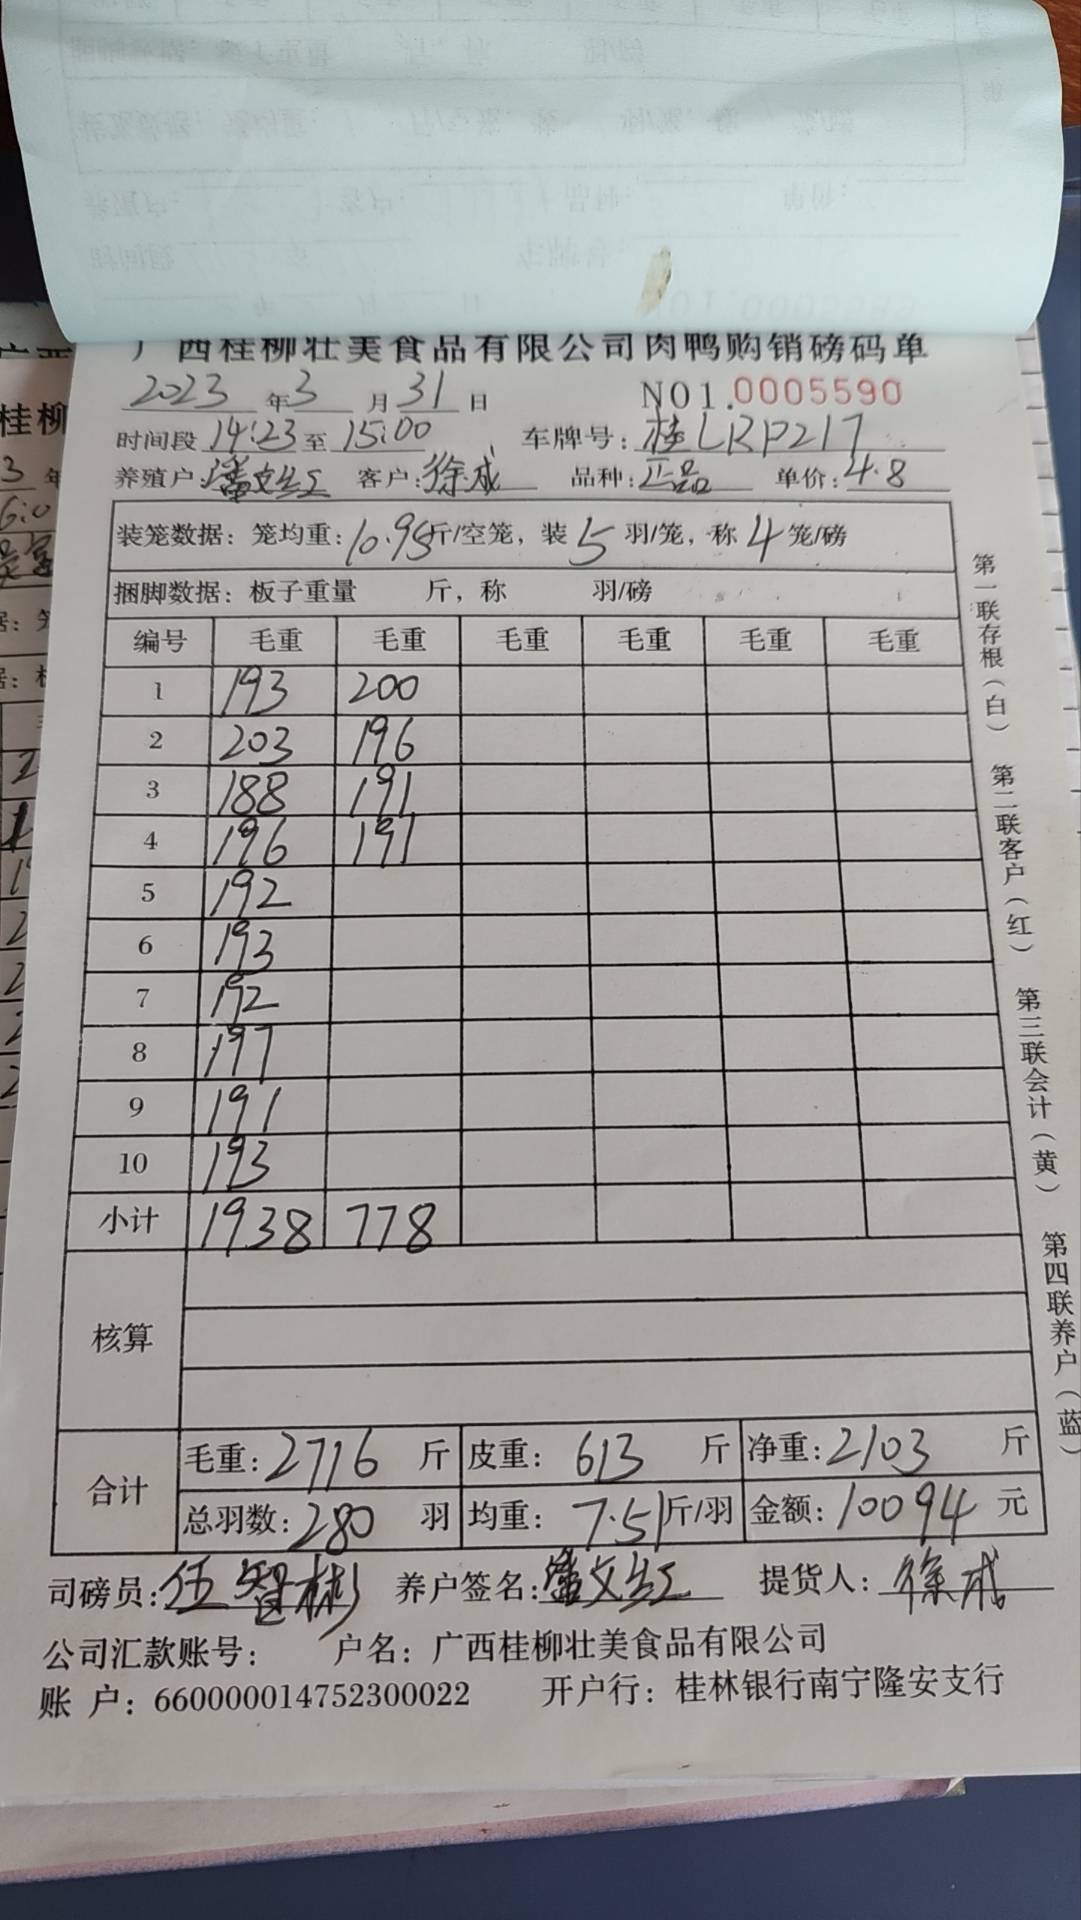 广西桂柳壮美食品有限公司肉鸭购销磅码单
2023年3月31日 NO1.0005590
时间段14:23至15:00 车牌号:桂LRP217
养殖户:潘 客户:徐成 品种:正品 单价:4.8
装笼数据:笼均重:10.95斤/空笼,装5羽/笼,称4笼/磅
捆脚数据:板子重量 斤,称 羽/磅
编号 毛重 毛重 毛重 毛重 毛重 毛重
1 193 200
2 203 196
3 188 191
4 196 191
5 192
6 193
7 192
8 197
9 191
10 193
小计 1938 778
核算
合计 毛重:2716斤 皮重:613斤 净重:2103斤
总羽数:280羽 均重:7.51斤/羽 金额:10094元
司磅员:伍智彬 养户签名:潘文 提货人:徐成
公司汇款账号: 户名:广西桂柳壮美食品有限公司
账 户:660000014752300022 开户行:桂林银行南宁隆安支行
第一联存根(白) 第二联客户(红) 第三联会计(黄) 第四联养户(蓝)